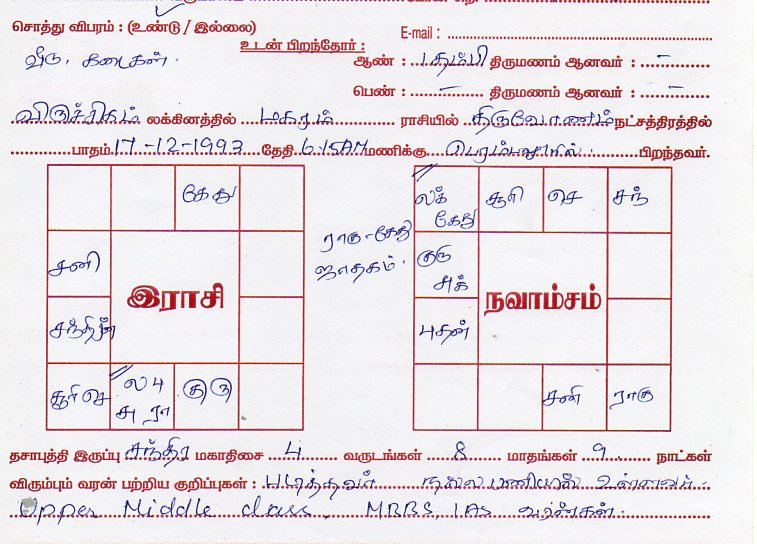 சொத்து விபரம் : (உண்டு / இல்லை)
E-mail :
உடன் பிறந்தோர் :
வீடு, கடைகள்.
ஆண் : 1 தம்பி திருமணம் ஆனவர் : -
பெண் : - திருமணம் ஆனவர் : -
விருச்சிகம் லக்கினத்தில் மகரம் ராசியில் திருவோணம் நட்சத்திரத்தில்
பாதம் 17-12-1993 தேதி 6.15AM மணிக்கு பெரம்பலூரில் பிறந்தவர்.
கேது
சனி
சந்திரன்
சூரி செ
ல பு
சு ரா
குரு
இராசி
ராகு - கேது
ஜாதகம்.
லக்
கேது
சூரி
செ
சந்
குரு
சுக்
புதன்
சனி
ராகு
நவாம்சம்
தசாபுத்தி இருப்பு சந்திர மகாதிசை 4 வருடங்கள் 8 மாதங்கள் 9 நாட்கள்
விரும்பும் வரன் பற்றிய குறிப்புகள் : படித்தவர் நல்ல பணியில் உள்ளவர்.
Upper Middle class, MBBS, IAS வரன்கள்.